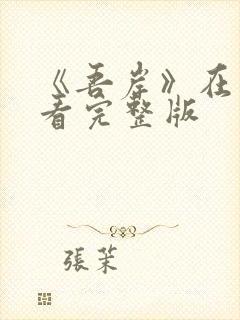 《吾岸》在
看完整版
張茉